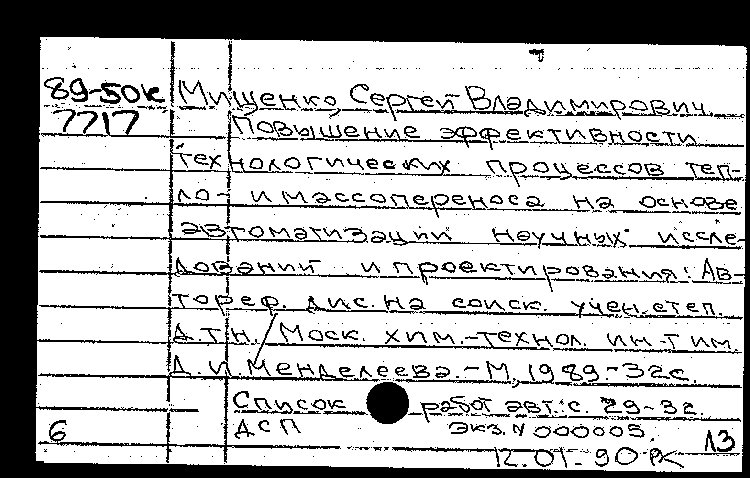 89-50к Мищенко, Сергей Владимирович.
7717 Повышение эффективности
технологических процессов теп-
ло- и массопереноса на основе
автоматизации научных иссле-
дований и проектирования: Ав-
тореф. дис. на соиск. учен. степ.
д.т.н. / Моск. хим.-технол. ин-т им.
Д.И. Менделеева. - М., 1989. - 32 с.
Список работ авт.: с. 29-32.
6 ДСП экз. N 000005. 13
12.01-90